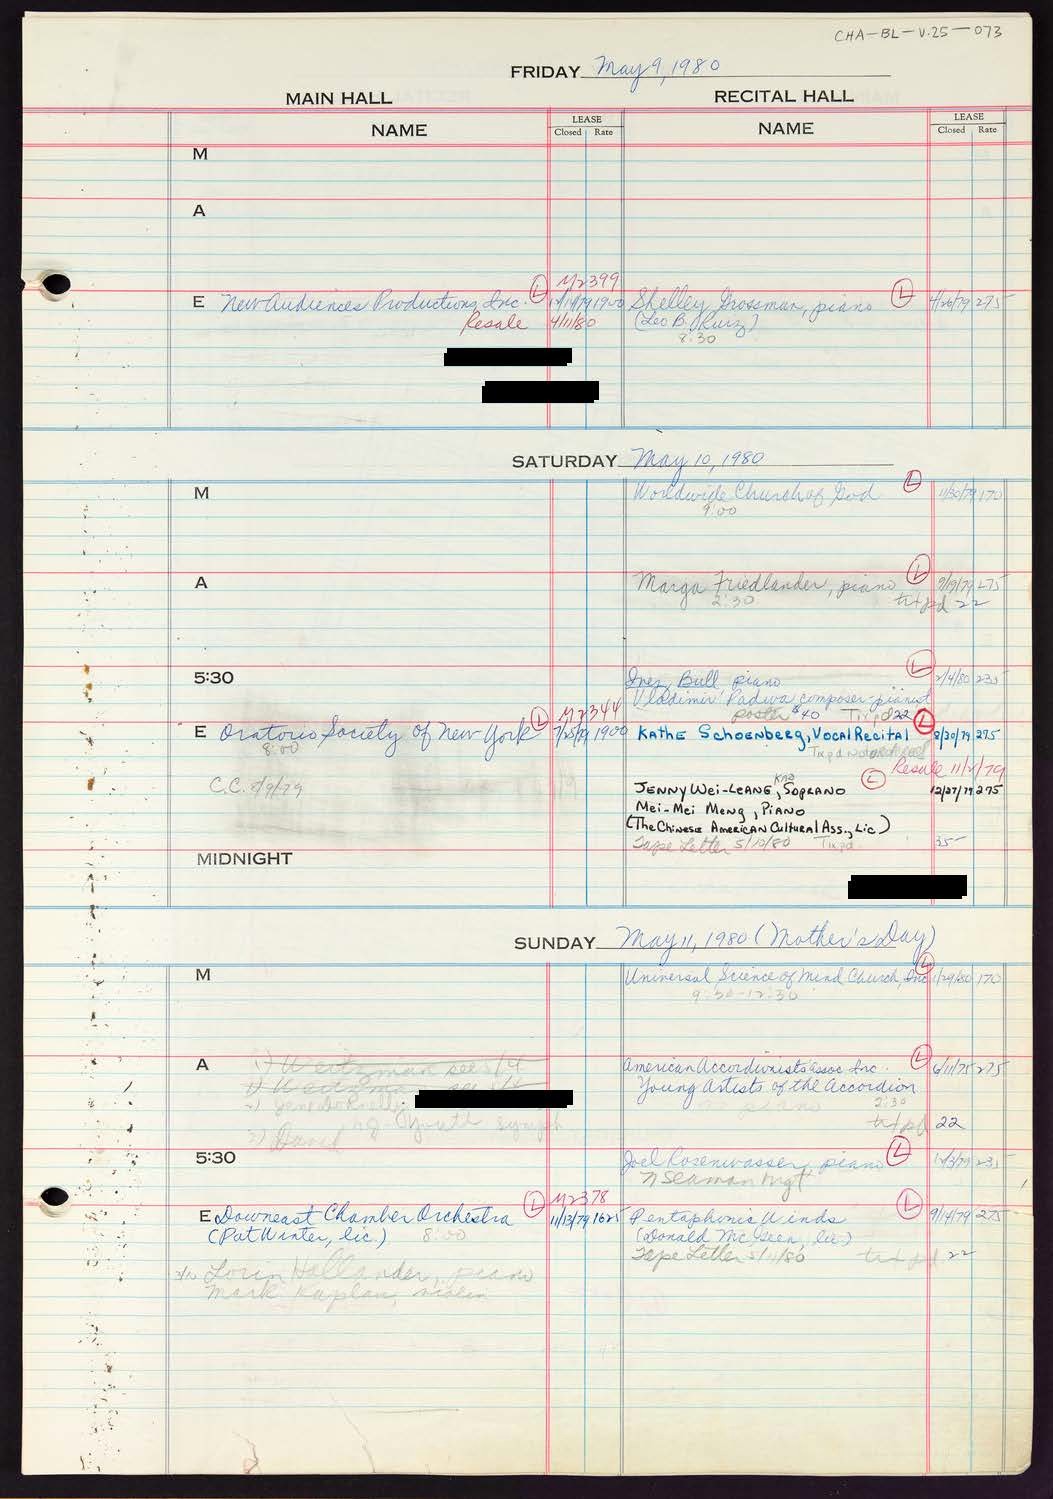 CHA-BL-V.25-073
FRIDAY May 9, 1980
MAIN HALL
RECITAL HALL
NAME
LEASE
Closed Rate
NAME
LEASE
Closed Rate
M
A
M2399
E New Audiences Productions, Inc. L 1900 Shelley Grossman, piano L 4/26/79 275
Resale 4/11/80 (Leo B. Ruiz)
8:30
SATURDAY May 10, 1980
M Worldwide Church of God L 11/30/79 170
9:00
A Marga Friedlander, piano L 9/19/79 275
2:30 txt pd 22
5:30 Inez Bull piano L 2/4/80 235
Vladimir Padwa composer-pianist
M2344 poster $40 Tix pd 22
E Oratorio Society of New York L 7/25/79 1900 Kathe Schoenberg, Vocal Recital L 8/30/79 275
8:00 Tix pd
Resale 11/8/79
C.C. 8/9/79 Jenny Wei-Leang, Soprano L 12/27/79 275
Mei-Mei Meng, Piano
(The Chinese American Cultural Ass., Lic)
Tape Letter 5/10/80 Tix pd 35-
MIDNIGHT
SUNDAY May 11, 1980 (Mother's Day)
M Universal Science of Mind Church, Inc L 1/29/80 170
9:30-12:30
A 1) Weitzman see 5/4 American Accordionists' Assoc Inc. L 6/11/75 275
1) Weitzman see 5/4 Young Artists of the Accordion
2) 2:30
Youth Symph txt pd 22
3) David
5:30 Joel Rosenwasser, piano L 12/3/79 235
N Seaman Mgt
M2378
E Downeast Chamber Orchestra L 11/13/79 1625 Pentaphonic Winds L 9/14/79 275
(Pat Winter, lic.) 8:00 (Donald McGeen, lic)
Tape Letter 5/11/80 txt pd. 22
Lorin Hollander, piano
Mark Kaplan, violin